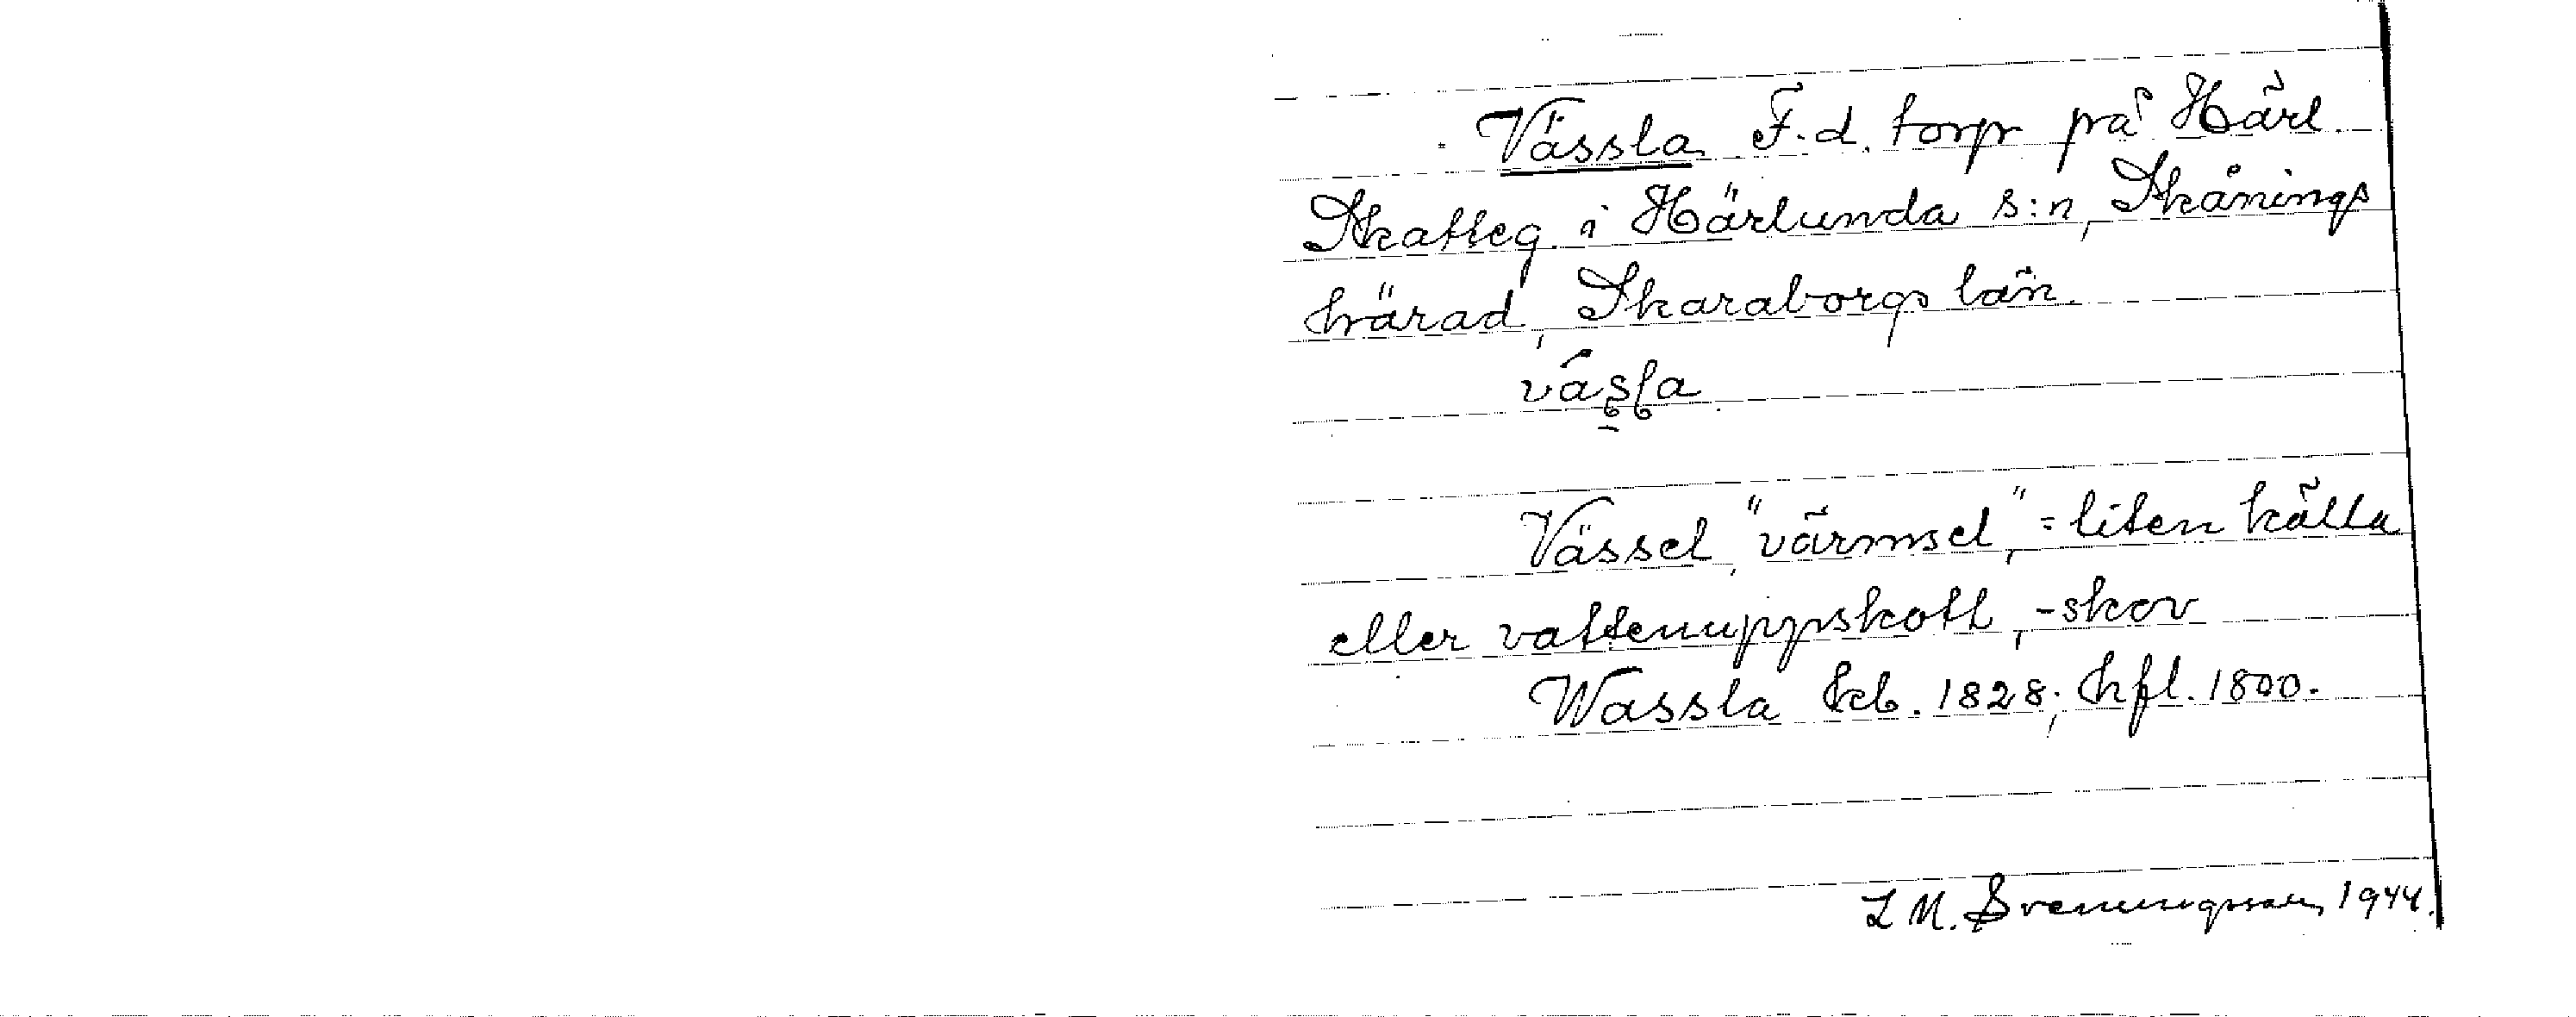 Vässla F.d. torp på Härl.
Skatteg. i Härlunda s:n, Skånings
härad, Skaraborgs län.
Vässel, "värmsel", = liten källa
eller vattenuppskott, -skov
Wassla kb. 1828; hfl. 1800.
L M. Svenungsson, 1944.